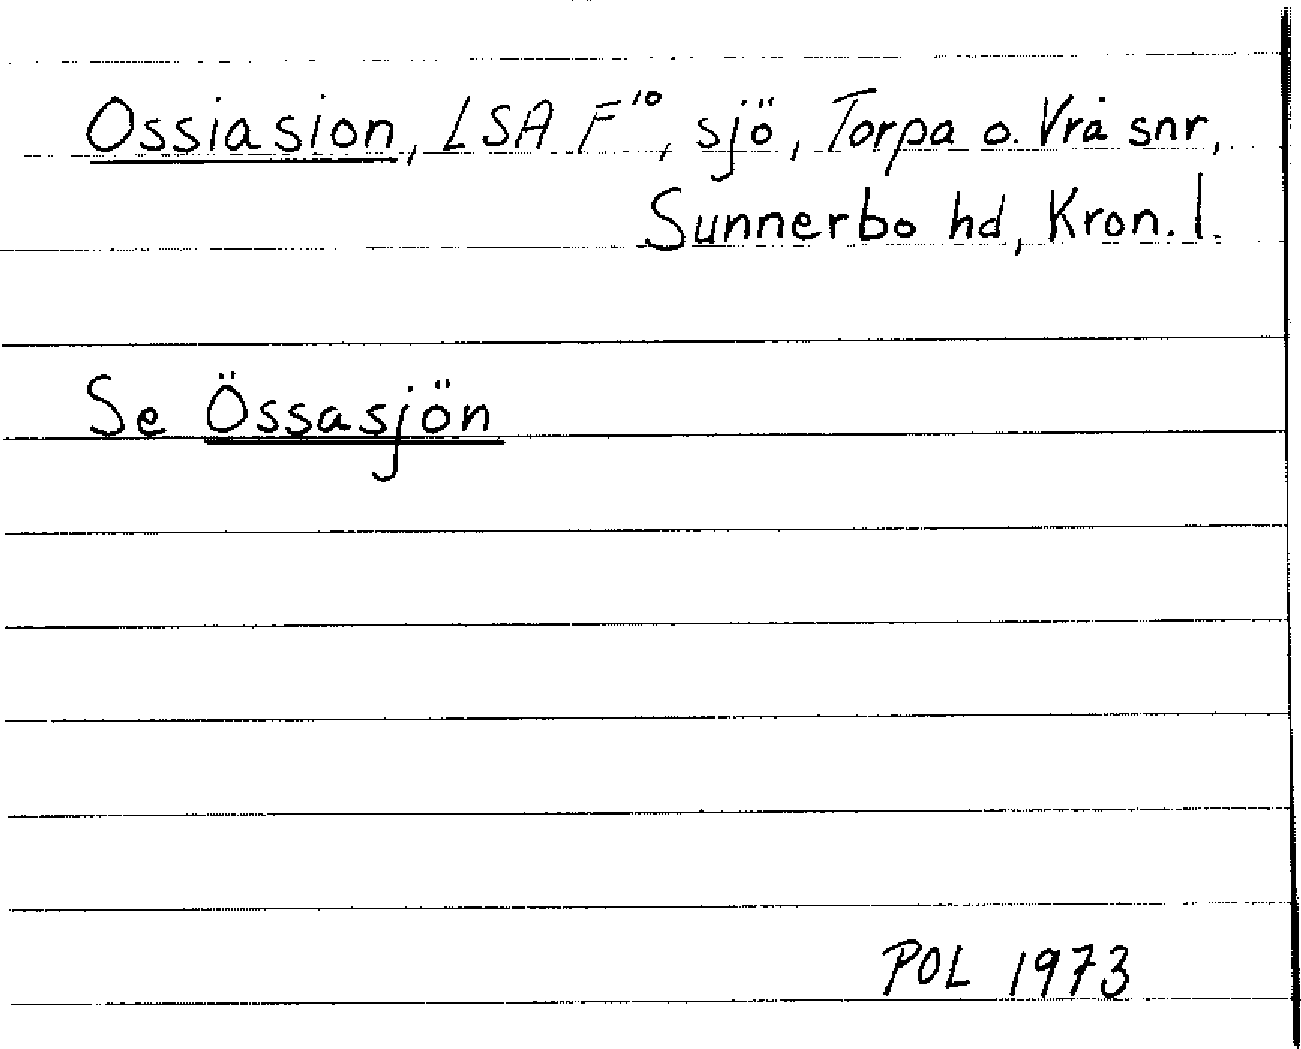 Ossiasion, LSA F¹⁰, sjö, Torpa o. Vrå snr,
Sunnerbo hd, Kron. l.
Se Össasjön
POL 1973